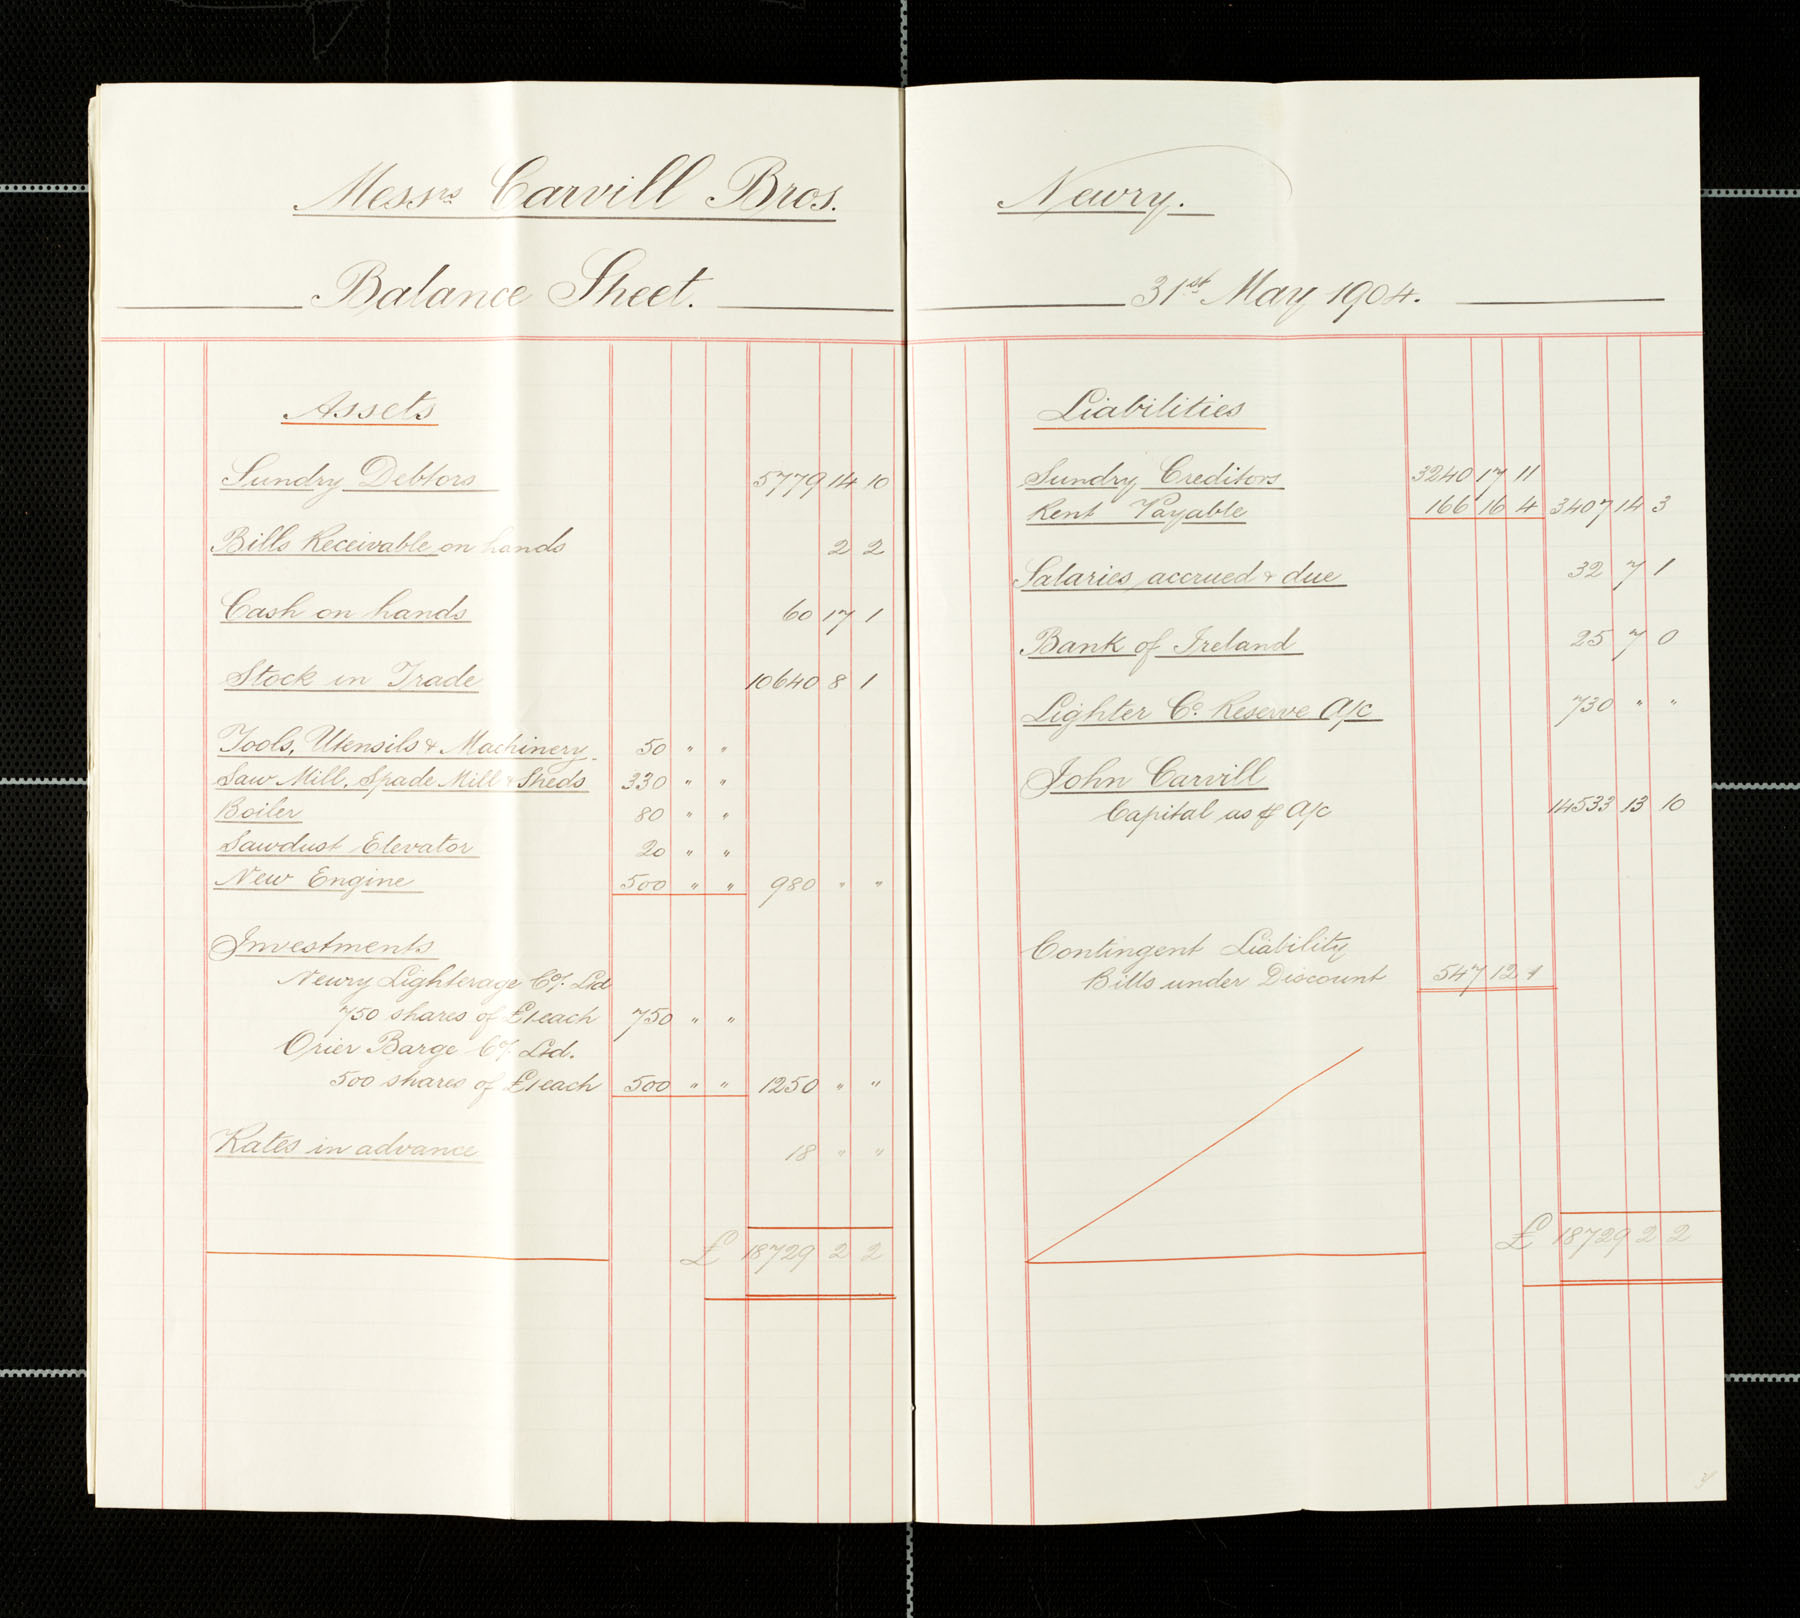 Messrs Carvill Bros.
Balance Sheet.
Assets
Sundry Debtors 5779 14 10
Bills Receivable on hands 2 2
Cash on hands 60 17 1
Stock in Trade 10640 8 1
Tools, Utensils & Machinery 50 " "
Saw Mill, Spade Mill & Sheds 330 " "
Boiler 80 " "
Sawdust Elevator 20 " "
New Engine 500 " " 980 " "
Investments
Newry Lighterage Co. Ltd
750 shares of £1 each 750 " "
Orier Barge Co. Ltd.
500 shares of £1 each 500 " " 1250 " "
Rates in advance 18 " "
£ 18729 2 2
Newry.
31st May 1904.
Liabilities
Sundry Creditors 3240 17 11
Rent Payable 166 16 4 3407 14 3
Salaries accrued & due 32 7 1
Bank of Ireland 25 7 0
Lighter Co. Reserve A/c 730 " "
John Carvill
Capital as  A/c 14533 13 10
Contingent Liability
Bills under Discount 547 12 1
£ 18729 2 2